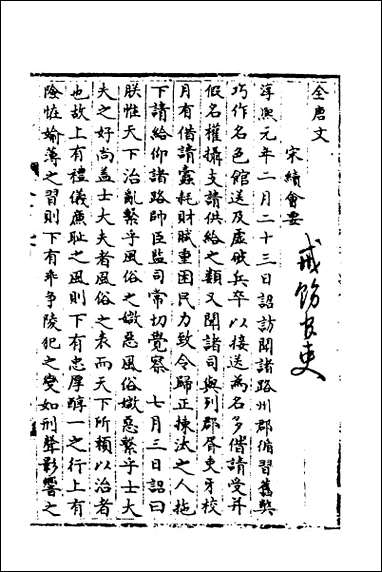 全唐文
宋續會要
戒飭官吏
淳熙元年二月二十三日詔訪聞諸路州郡循習舊弊
巧作名色館送及虛破兵卒以接送為名多借請受并
假名權攝支請供給之類又聞諸司與列郡胥吏牙校
月有借請蠹耗財賦重困民力致令歸正揀汰之人拖
下請給仰諸路帥臣監司常切覺察 七月三日詔曰
朕惟天下治亂繫乎風俗之媺惡風俗媺惡繫乎士大
夫之好尚蓋士大夫者風俗之表而天下所賴以治者
也故上有禮儀廉恥之風則下有忠厚醇一之行上有
險怪媮薄之習則下有乖爭陵犯之變如形聲影響之